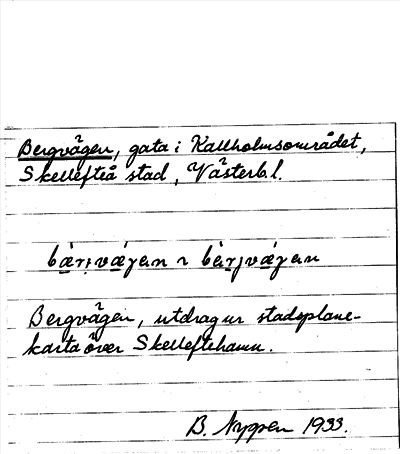 Bergvägen, gata i Kallholmsområdet,
Skellefteå stad, Västerb. l.
bèrjvǽgen ~ bèrjvǽgen
Bergvägen, utdrag ur stadsplane-
karta över Skelleftehamn.
B. Nygren 1933.